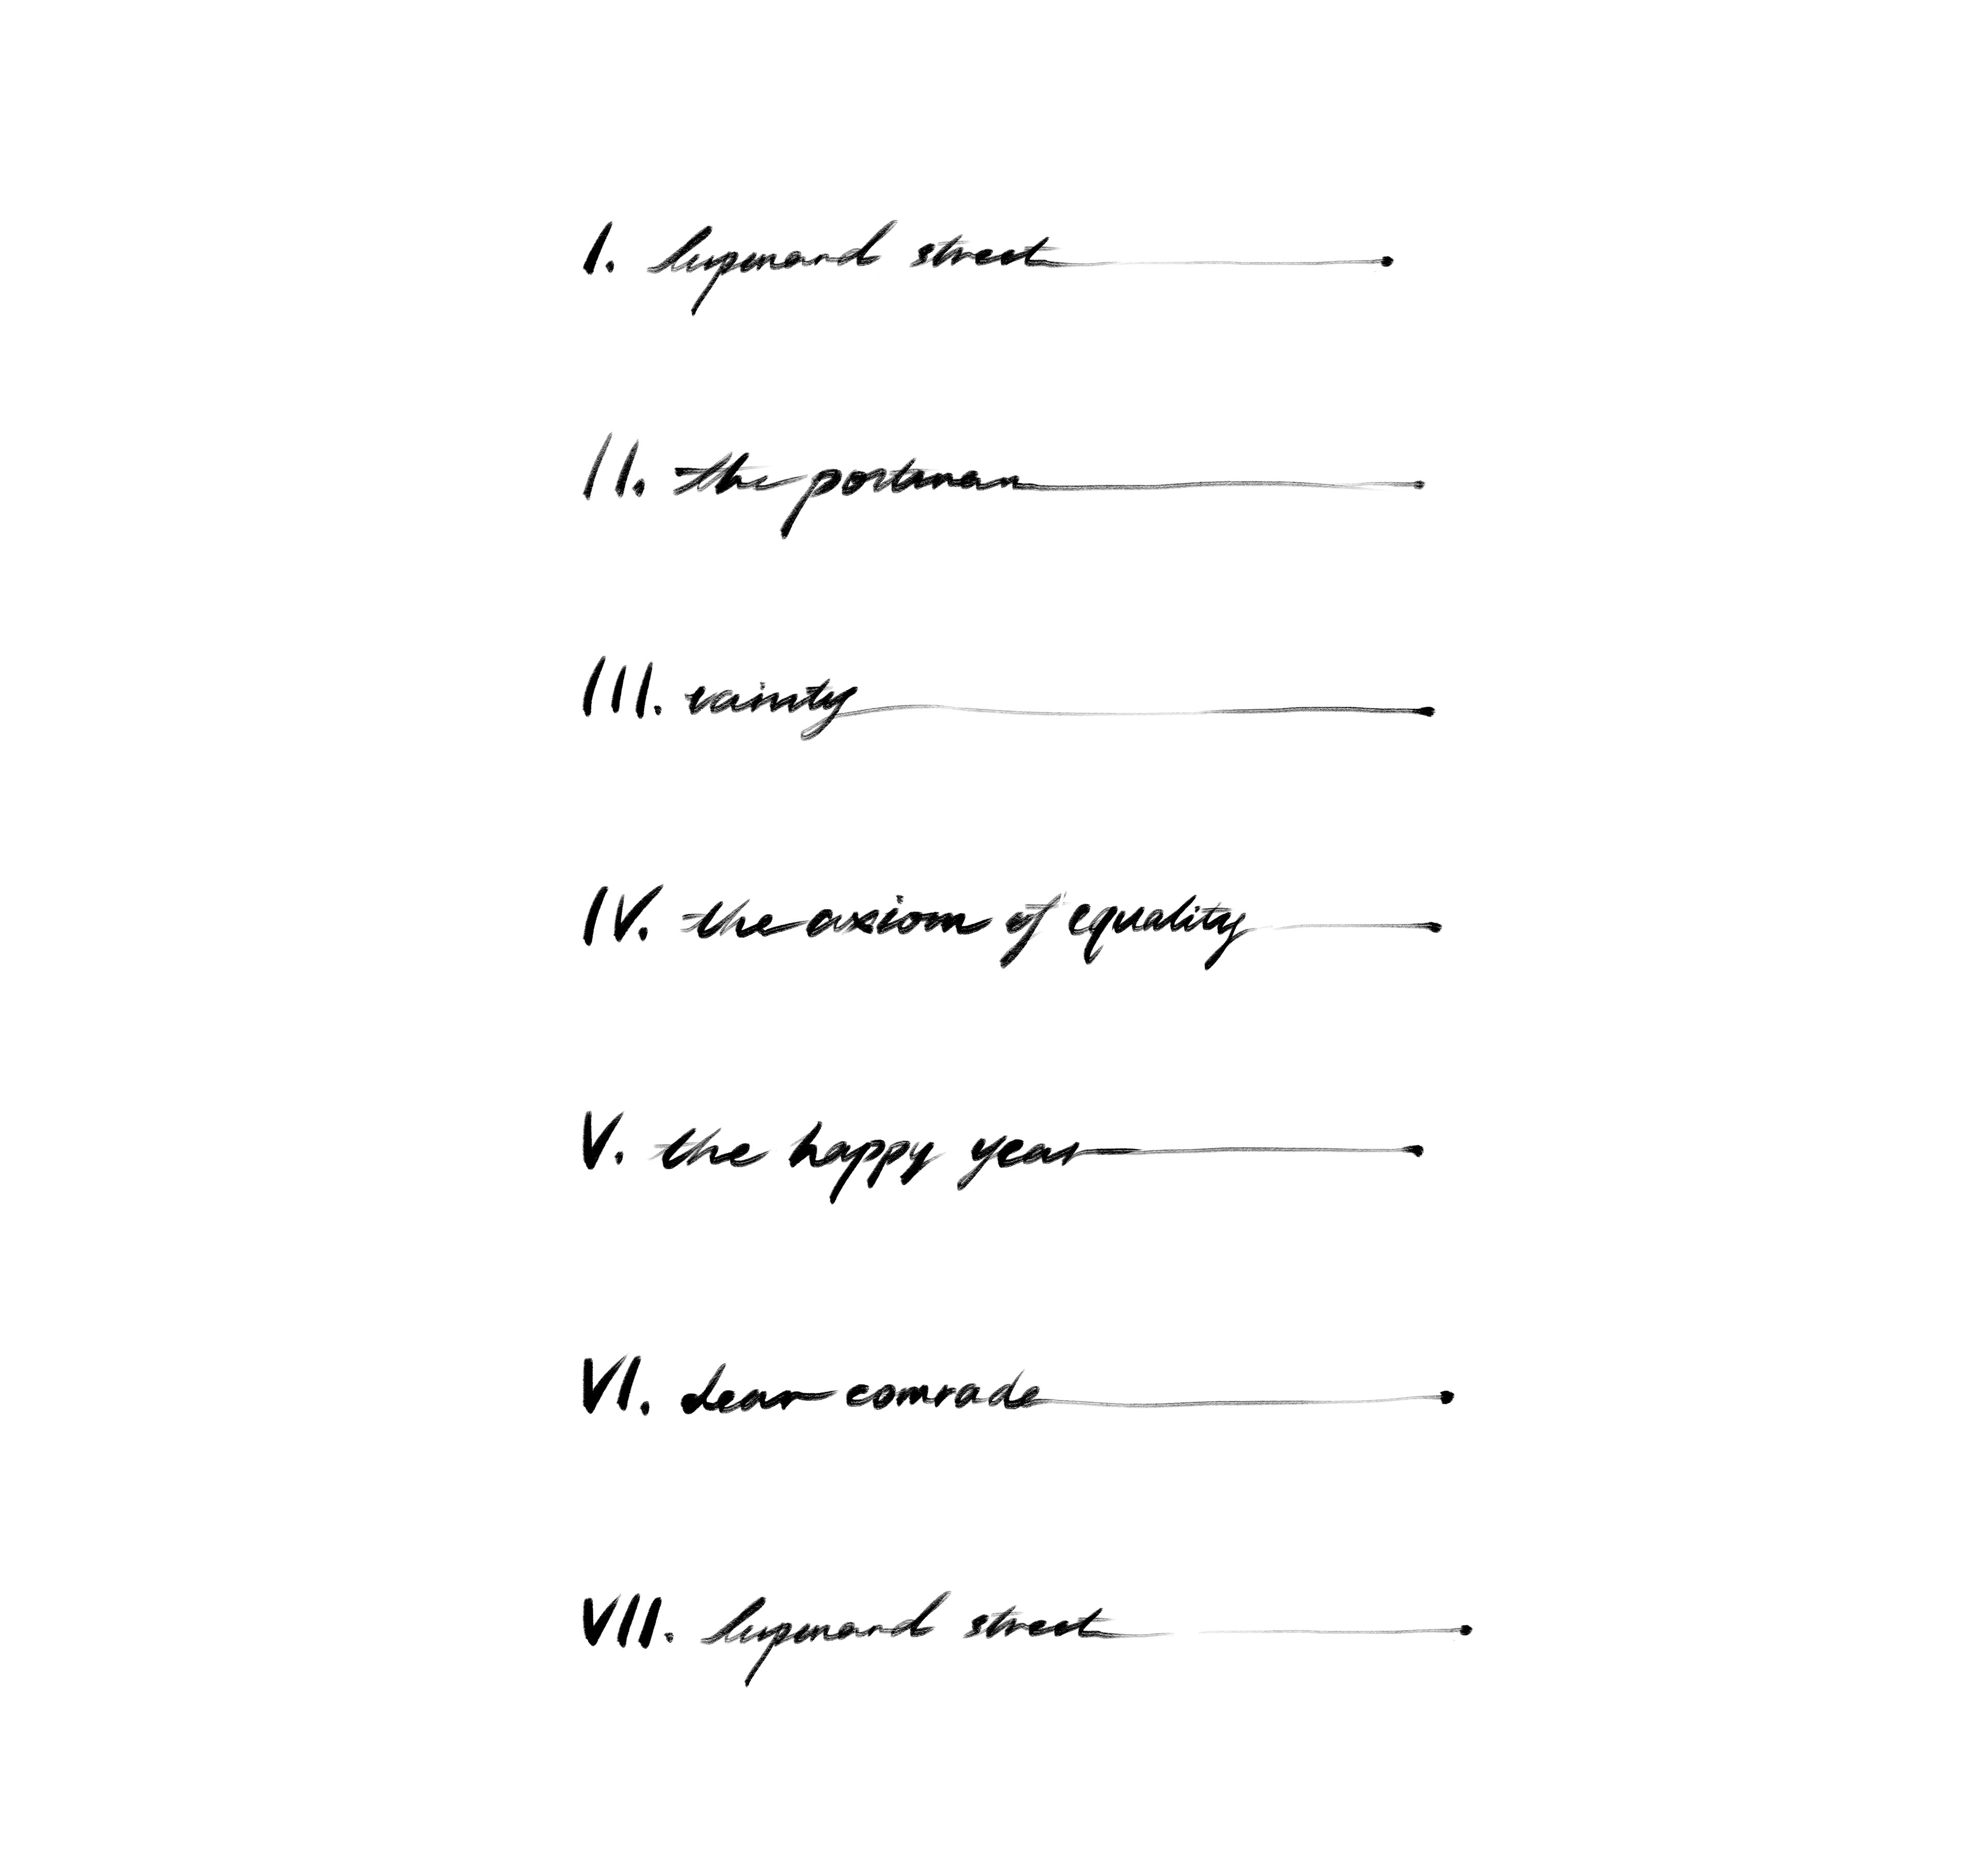 I. lispenard street
II. the postman
III. vanity
IV. the axiom of equality
V. the happy year
VI. dear comrade
VII. lispenard street